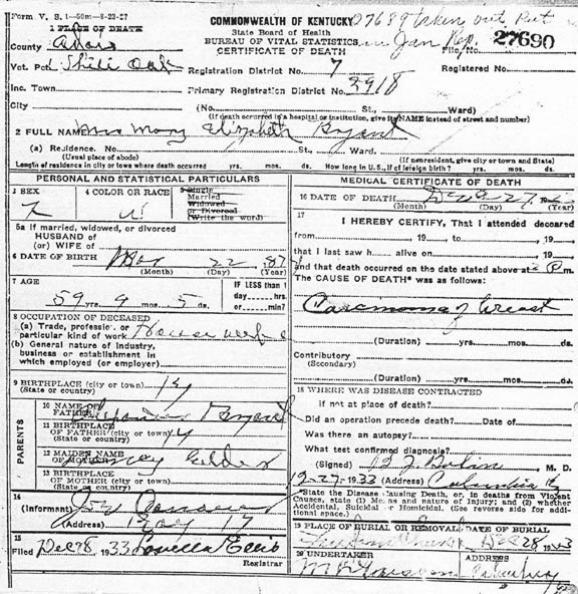 Form V. S. 1-50m-8-23-27
27689 taken out Put
in Jan Rep.
COMMONWEALTH OF KENTUCKY
State Board of Health
BUREAU OF VITAL STATISTICS
CERTIFICATE OF DEATH
File No. 27690
1 PLACE OF DEATH
County Adair
Vot. Pct
Registration District No. 7
Registered No.
Inc. Town
Primary Registration District No. 2918
City
(No. St., Ward)
(If death occurred in a hospital or institution, give its NAME instead of street and number)
2 FULL NAME Mrs Mary Elizabeth Bryant
(a) Residence. No. St., Ward.
(Usual place of abode)
(If nonresident, give city or town and State)
Length of residence in city or town where death occurred yrs. mos. ds. How long in U.S., if of foreign birth? yrs. mos. ds.
PERSONAL AND STATISTICAL PARTICULARS
3 SEX
4 COLOR OR RACE
5 Single
Married
Widowed
or Divorced
(Write the word)
5a If married, widowed, or divorced
HUSBAND of
(or) WIFE of
6 DATE OF BIRTH 22
(Month) (Day) (Year)
7 AGE
59 yrs. 9 mos. 5 ds.
IF LESS than 1
day, hrs.
or min.
8 OCCUPATION OF DECEASED
(a) Trade, profession or
particular kind of work
(b) General nature of industry,
business or establishment in
which employed (or employer)
9 BIRTHPLACE (city or town) Ky
(State or country)
PARENTS
10 NAME OF
FATHER Bryant
11 BIRTHPLACE
OF FATHER (city or town) Ky
(State or country)
12 MAIDEN NAME
OF MOTHER
13 BIRTHPLACE
OF MOTHER (city or town)
(State or country)
14
(Informant)
(Address)
15
Filed Dec 28, 1933 Louella Ellis
Registrar
MEDICAL CERTIFICATE OF DEATH
16 DATE OF DEATH 27
(Month) (Day) (Year)
17
I HEREBY CERTIFY, That I attended deceased
from 19 to 19
that I last saw h alive on 19
and that death occurred on the date stated above at P.m.
The CAUSE OF DEATH* was as follows:
Carcinoma of breast
(Duration) yrs. mos. ds.
Contributory
(Secondary)
(Duration) yrs. mos. ds.
18 WHERE WAS DISEASE CONTRACTED
if not at place of death?
Did an operation precede death? Date of
Was there an autopsy?
What test confirmed diagnosis?
(Signed) M. D.
12-27-1933 (Address) Columbia Ky
*State the Disease Causing Death, or, in deaths from Violent
Causes, state (1) Means and nature of Injury; and (2) whether
Accidental, Suicidal or Homicidal. (See reverse side for
additional space.)
19 PLACE OF BURIAL OR REMOVAL DATE OF BURIAL
Dec 28, 1933
20 UNDERTAKER ADDRESS